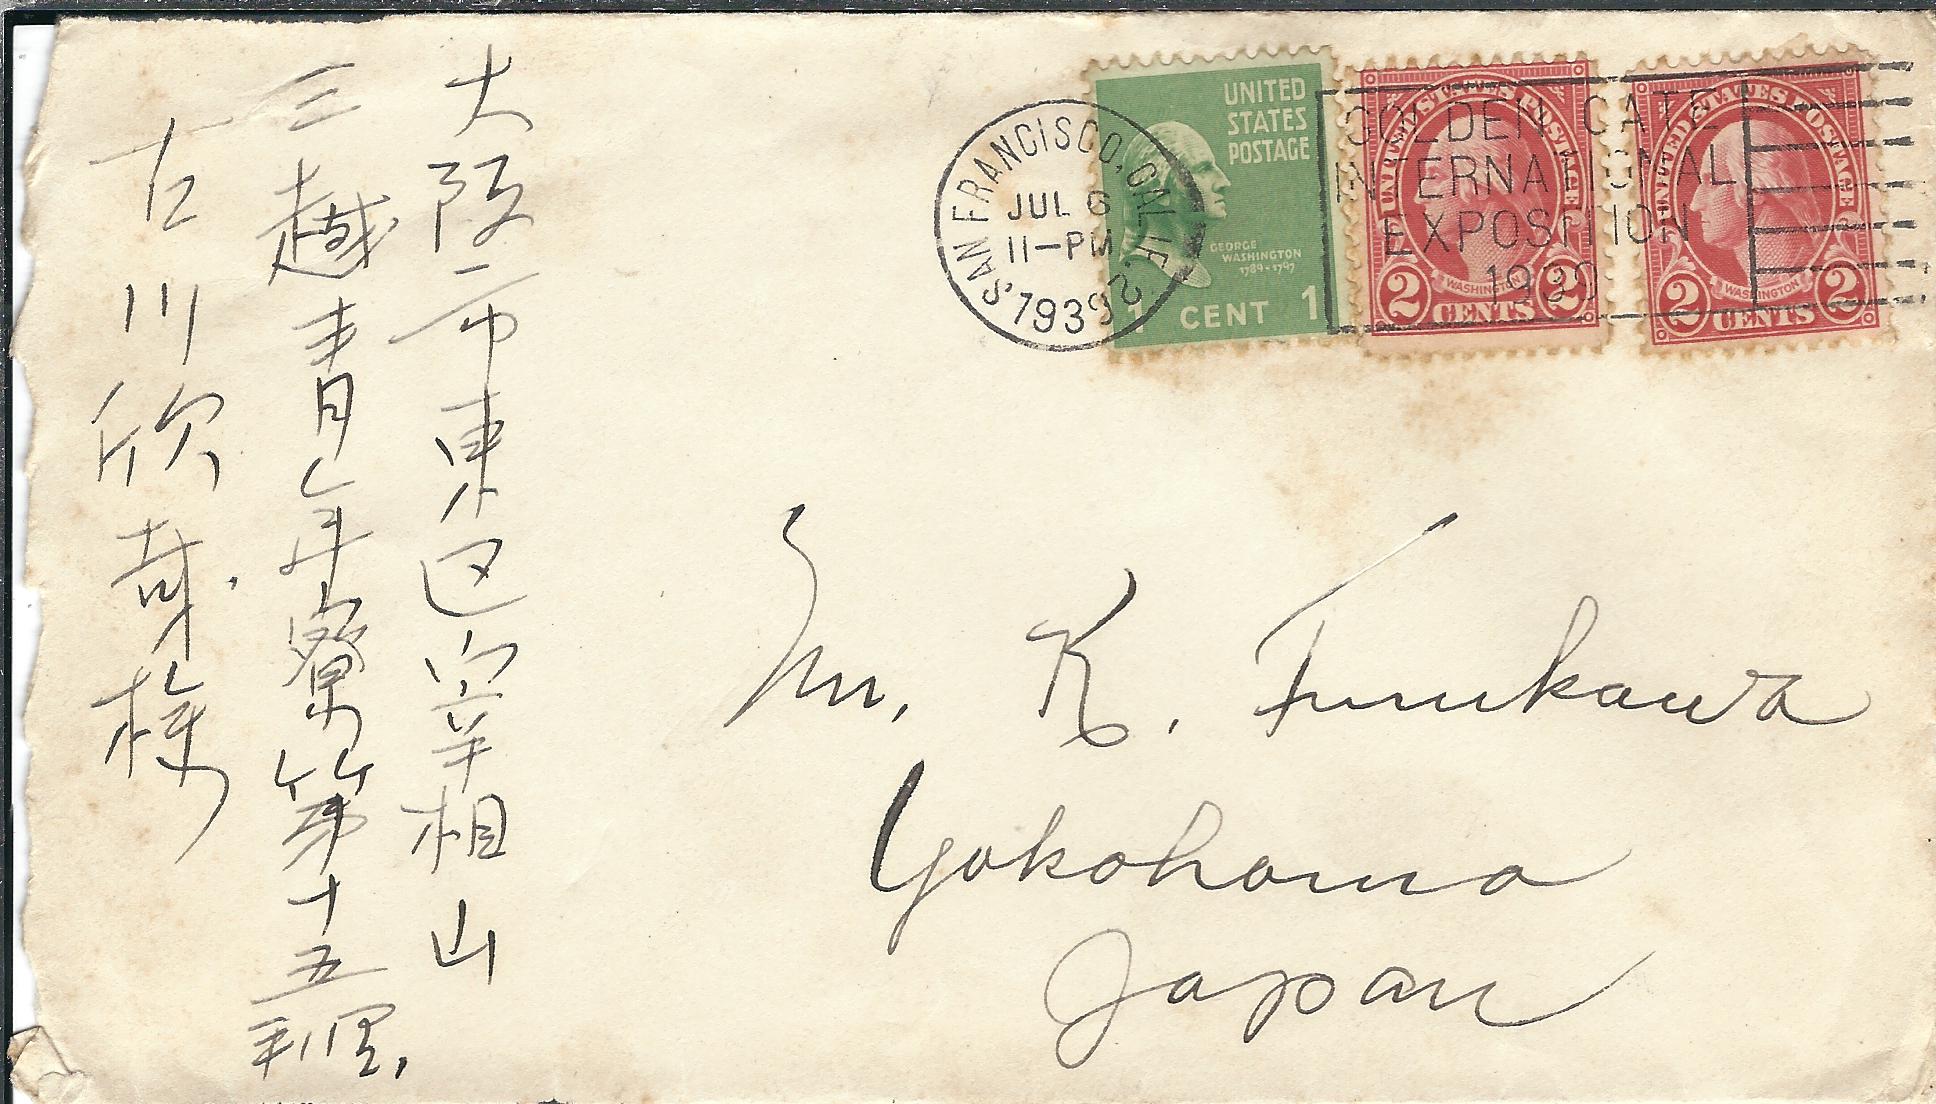 大阪市東区宰相山
三越青年寮第十五
古川欣哉様
SAN FRANCISCO, CALIF. 2
JUL 6
11-PM
1939
UNITED
STATES
POSTAGE
GEORGE
WASHINGTON
1789-1797
1 CENT 1
GOLDEN GATE
INTERNATIONAL
EXPOSITION
1939
UNITED STATES POSTAGE
WASHINGTON
2 CENTS 2
UNITED STATES POSTAGE
WASHINGTON
2 CENTS 2
Mr. K. Furukawa
Yokohama
Japan